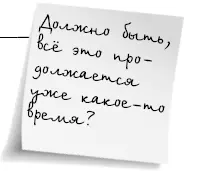 Должно быть,
всё это про-
должается
уже какое-то
время?